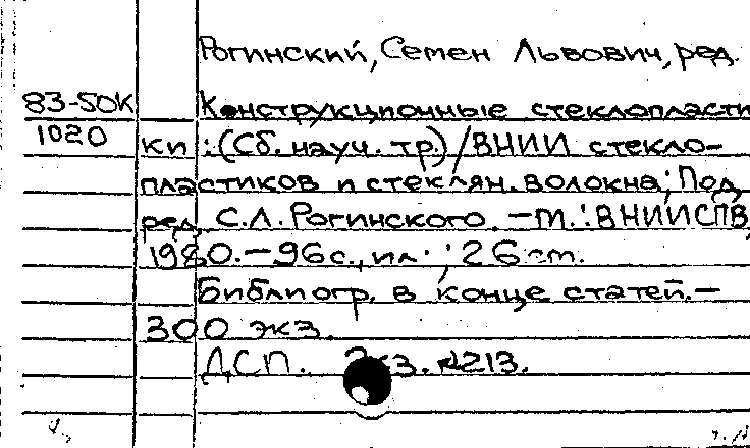 Рогинский, Семен Львович, ред.
83-50К Конструкционные стеклопласти
1020 ки : (Сб. науч. тр.) / ВНИИ стекло-
пластиков и стеклян. волокна; Под
ред. С.Л. Рогинского. — М. : ВНИИСПВ,
1980. — 96 с., ил. ; 26 см.
Библиогр. в конце статей. —
300 экз.
ДСП. Экз. №213.